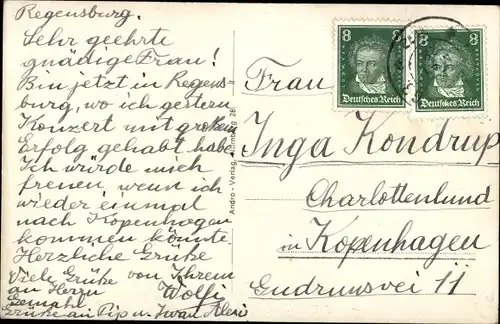 Regensburg.
Sehr geehrte
gnädige Frau!
Bin jetzt in Regens-
burg, wo ich gestern
Konzert mit großem
Erfolg gehabt habe
Ich würde mich
freuen wenn ich
wieder einmal
nach Kopenhagen
kommen könnte.
Herzliche Grüße
Viele Grüße von Ihrem
an Herrn Wolfi
Gemahl
Grüße an Pip u. Iwan
Andro-Verlag, Nürnberg
8 8
Deutsches Reich Deutsches Reich
Frau
Inga Kondrup
Charlottenlund
in Kopenhagen
Gudrunsvei 11